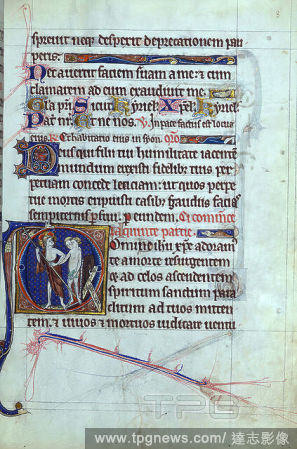 spreuit neq; despexit deprecationem pau
peris.
Nec auertit faciem suam a me: & cum
clamarem ad eum exaudiuit me.
Gla pri. Sicut. Kyrieł. Xpeł. Kyrieł.
Pat nr. Et ne nos. V. In pace factus est locus
eius. R. Et habitatio eius in syon. Oro
Deus qui filii tui humilitate iacentē
mundum erexisti fidelibz tuis per
petuam concede leticiam: ut quos perpe
tue mortis eripuisti casibz gaudiis facias
sempiternis p̄frui. p eundem.
quinte partie.
Domine ihu xpe adoram
te a morte resurgentem
& ad celos ascendentem
spiritum sanctum para
clitum ad tuos mitten
tem. & uiuos & mortuos iudicare uentu
TPG
www.tpgnews.com/ 達志影像